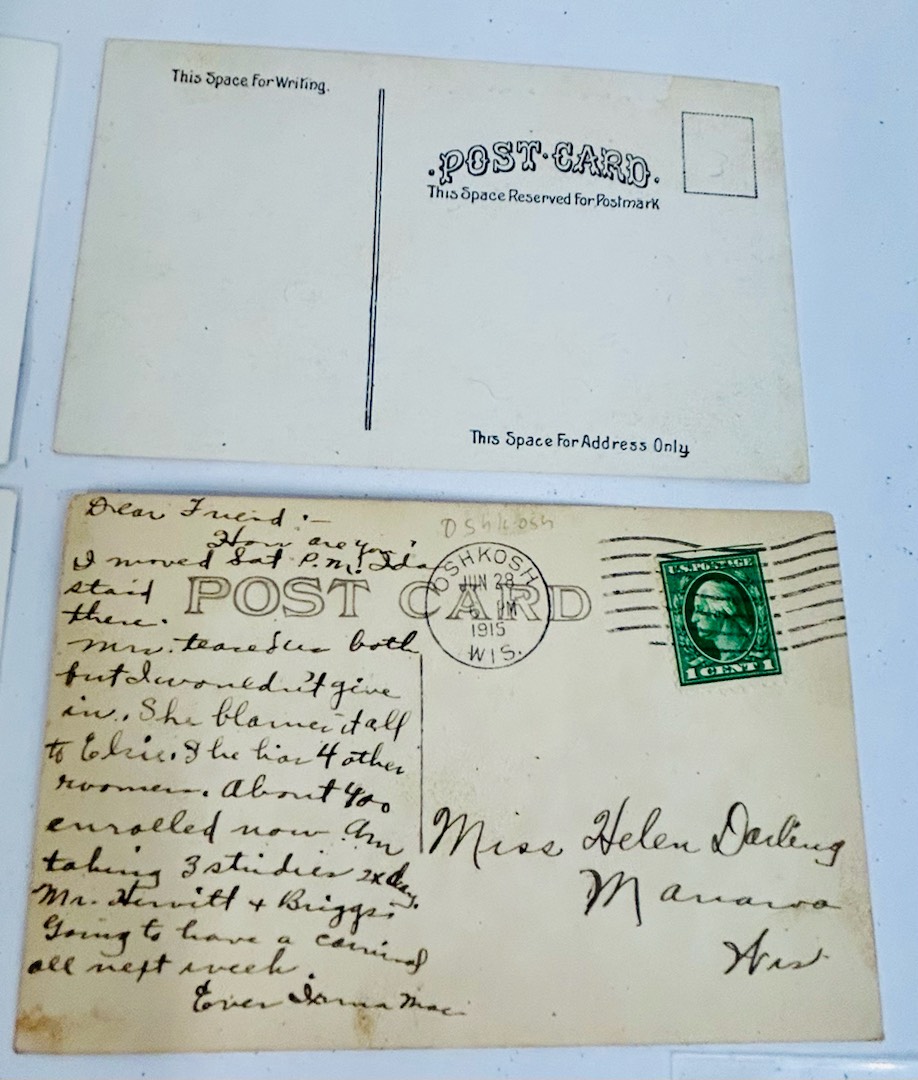 This Space For Writing.
POST·CARD.
This Space Reserved For Postmark
3
This Space For Address Only
Dear Friend :-
How are you?
I moved Sat P.M. Ida
staid
there.
POST CARD
Oshkosh
OSHKOSH
JUN 28
6 PM
1915
WIS.
U.S. POSTAGE
1 CENT 1
Mrs. teased us both
but I wouldn't give
in. She blames it all
to Elsie. She has 4 other
roomers. About 400
enrolled now Am
taking 3 studies 2x day.
Mr. Hewitt + Briggs.
Going to have a carnival
all next week.
Ever Irma Mac
Miss Helen Darling
Manawa
Wis